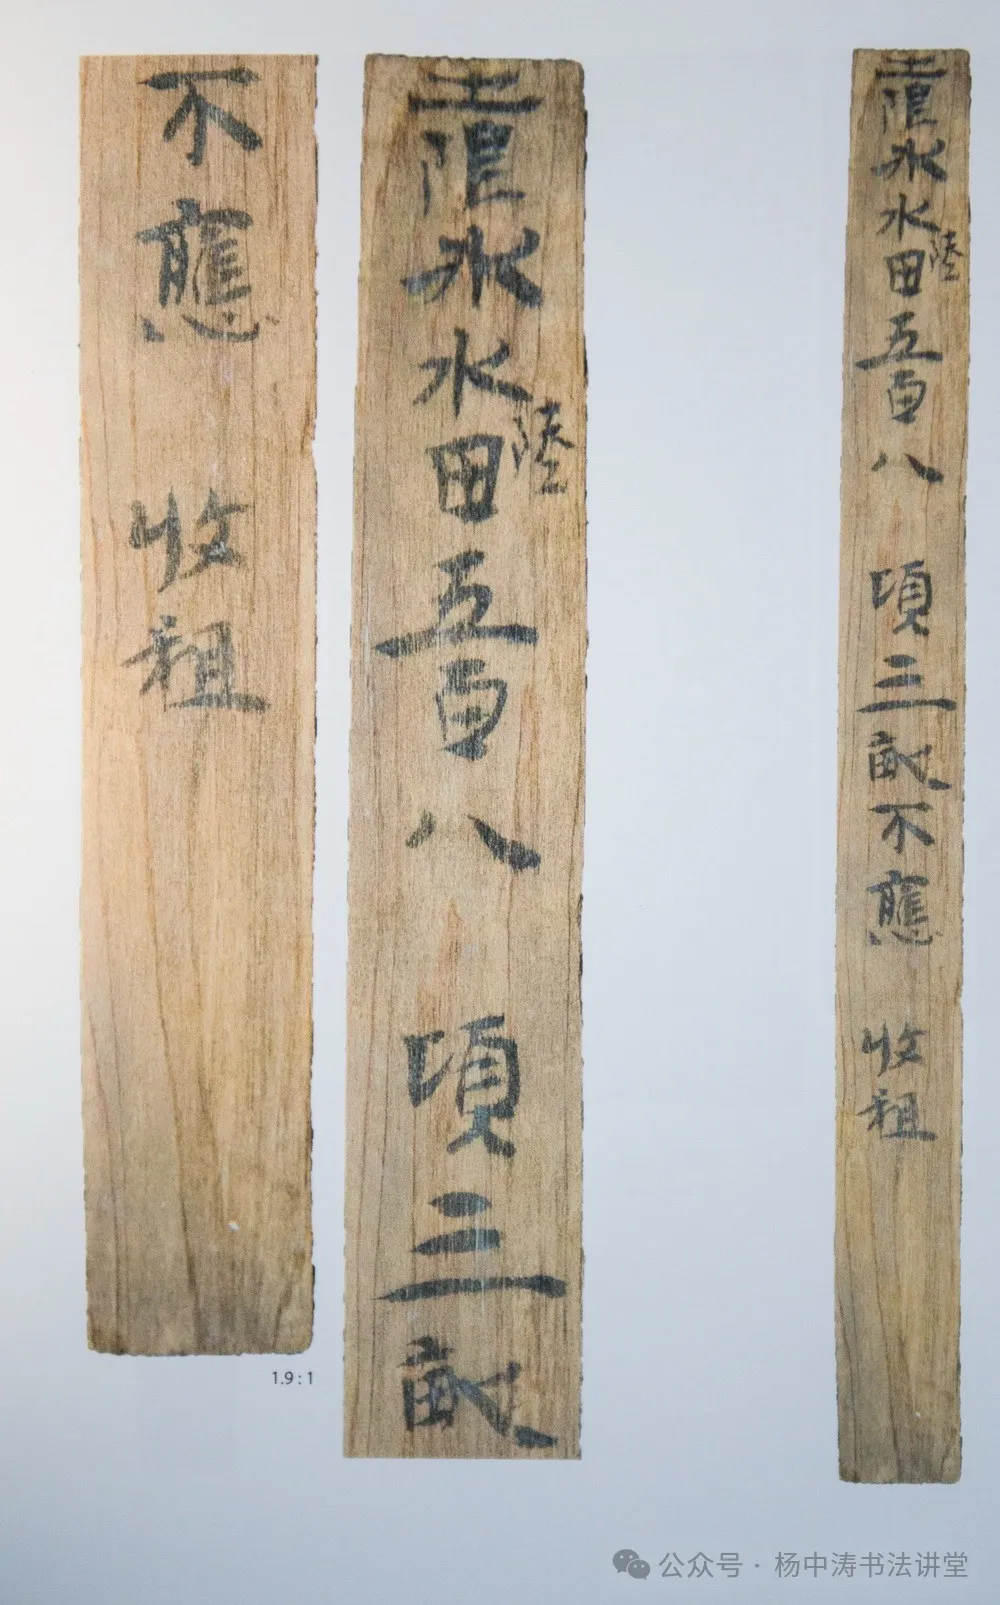 水田陸五百八 頃三畝不應 收租
水田陸五百八 頃三畝
不應 收租
1.9 : 1
公众号 · 杨中涛书法讲堂